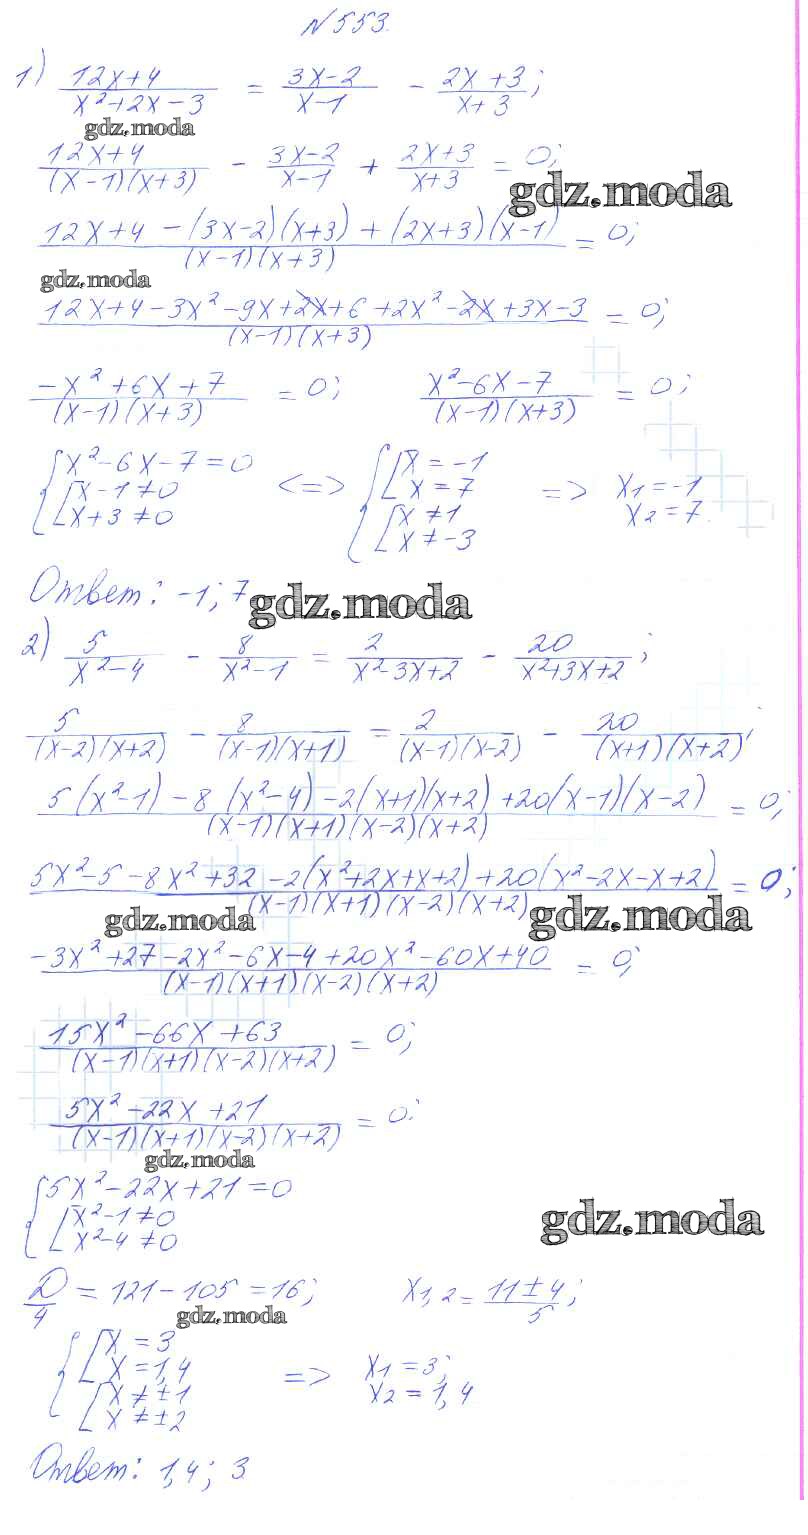 №553.
1) (12x+4)/(x²+2x-3) = (3x-2)/(x-1) - (2x+3)/(x+3);
gdz.moda
(12x+4)/((x-1)(x+3)) - (3x-2)/(x-1) + (2x+3)/(x+3) = 0;
gdz.moda
(12x+4-(3x-2)(x+3)+(2x+3)(x-1))/((x-1)(x+3)) = 0;
gdz.moda
(12x+4-3x²-9x+2x+6+2x²-2x+3x-3)/((x-1)(x+3)) = 0;
(-x²+6x+7)/((x-1)(x+3)) = 0; (x²-6x-7)/((x-1)(x+3)) = 0;
{x²-6x-7=0 [x-1≠0 x+3≠0 <=> {[x=-1 x=7 [x≠1 x≠-3 => x1=-1 x2=7.
Ответ: -1; 7
gdz.moda
2) 5/(x²-4) - 8/(x²-1) = 2/(x²-3x+2) - 20/(x²+3x+2);
5/((x-2)(x+2)) - 8/((x-1)(x+1)) = 2/((x-1)(x-2)) - 20/((x+1)(x+2));
(5(x²-1)-8(x²-4)-2(x+1)(x+2)+20(x-1)(x-2))/((x-1)(x+1)(x-2)(x+2)) = 0;
(5x²-5-8x²+32-2(x²+2x+x+2)+20(x²-2x-x+2))/((x-1)(x+1)(x-2)(x+2)) = 0;
gdz.moda
gdz.moda
(-3x²+27-2x²-6x-4+20x²-60x+40)/((x-1)(x+1)(x-2)(x+2)) = 0;
(15x²-66x+63)/((x-1)(x+1)(x-2)(x+2)) = 0;
(5x²-22x+21)/((x-1)(x+1)(x-2)(x+2)) = 0;
gdz.moda
{5x²-22x+21=0 [x²-1≠0 x²-4≠0
gdz.moda
D/4 = 121-105=16; x1,2 = (11±4)/5;
gdz.moda
{[x=3 x=1,4 [x≠±1 x≠±2 => x1=3; x2=1,4
Ответ: 1,4; 3